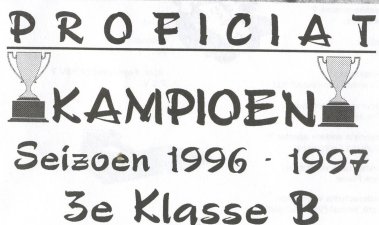 PROFICIAT
KAMPIOEN
Seizoen 1996 - 1997
3e Klasse B